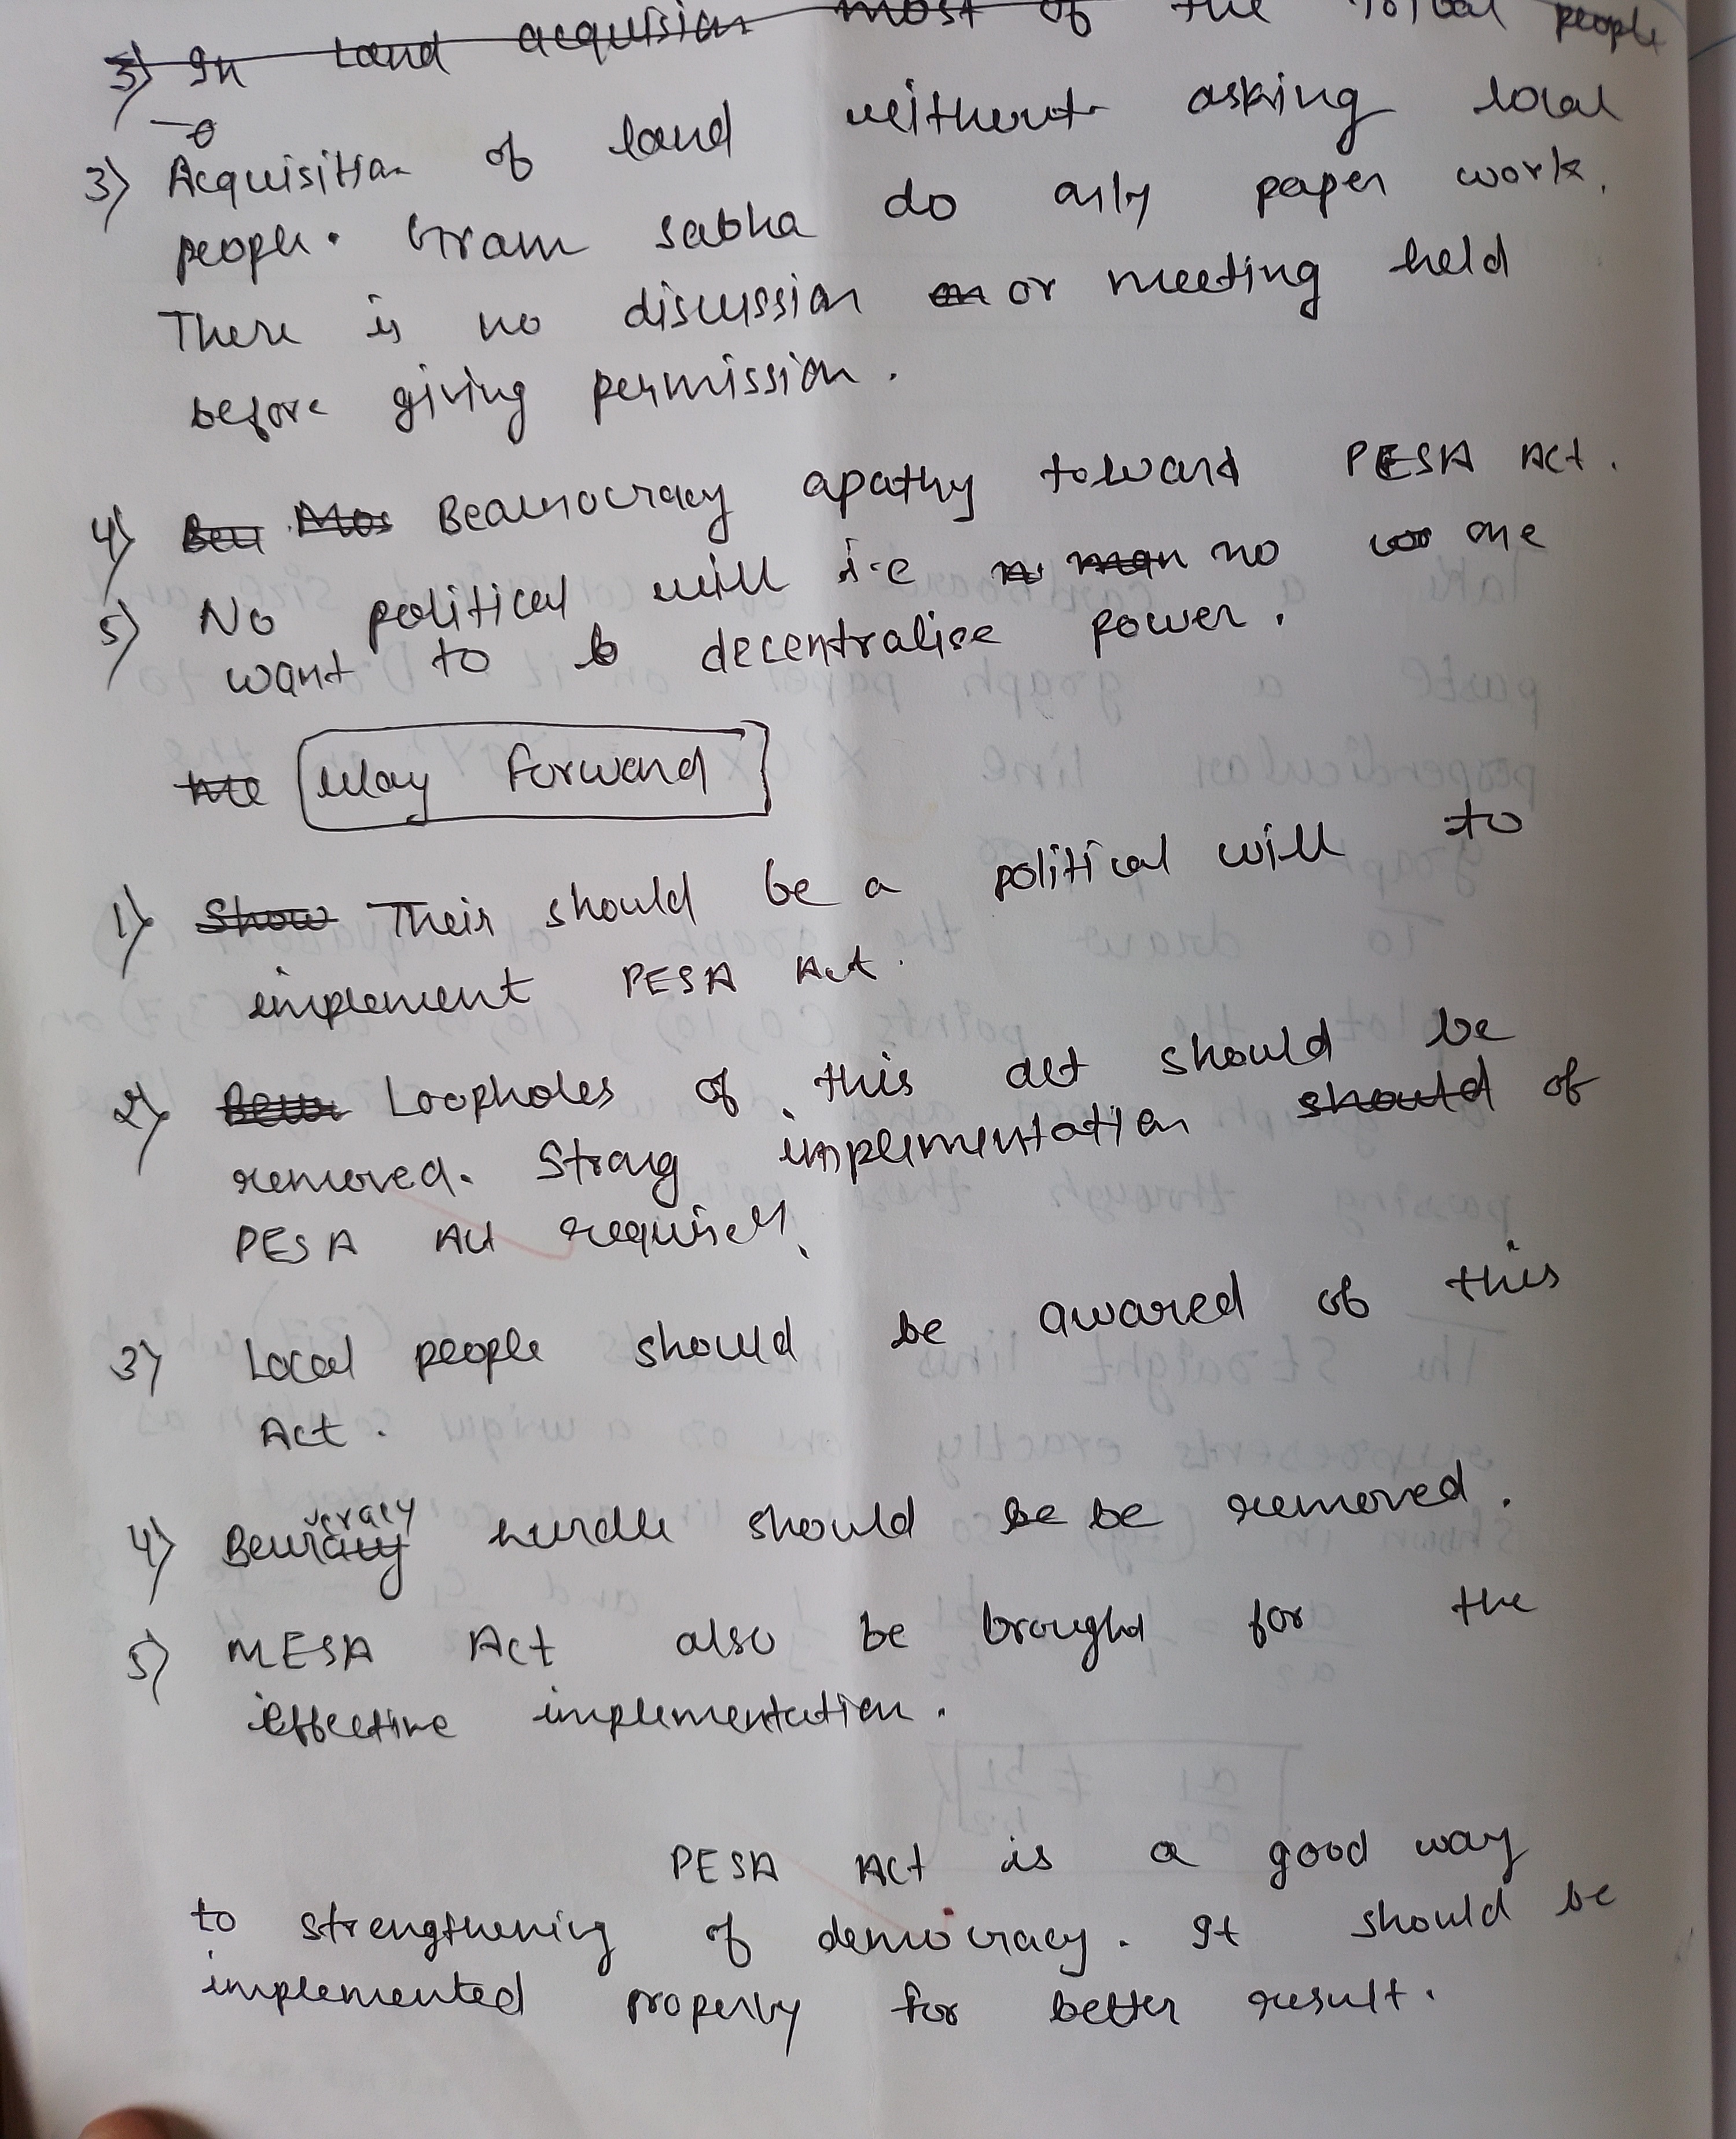 3) In Land acquisian most of the Tribal people
3) Acquisitian of land without asking local
people. Gram sabha do only paper work.
There is no discussian or meeting held
before giving permission.
4) Beaurocracy apathy toward PESA Act.
5) No political will i.e no one
want to decentralise power.
Way Forward
1) Their should be a political will to
implement PESA Act.
2) Loopholes of this act should be
removed. Strong implementation of
PESA Act required.
3) Local people should be awared of this
Act.
4) Beurocracy hurdle should be be removed.
5) MESA Act also be brought for the
effective implementation.
PESA Act is a good way
to strengthening of democracy. It should be
implemented properly for better result.